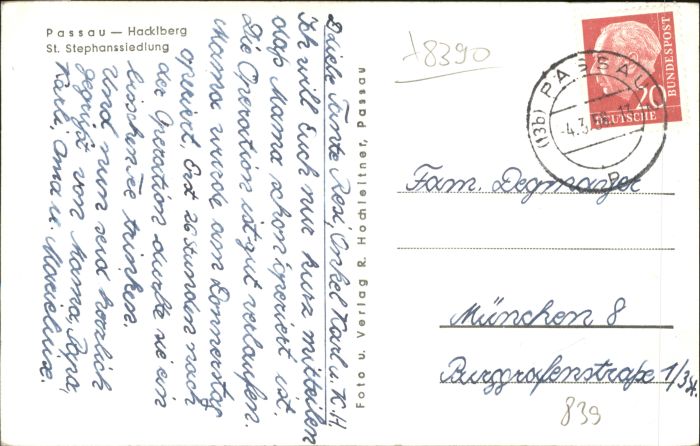 Passau — Hacklberg
St. Stephanssiedlung
Liebe Tante Resi, Onkel Karl u. K.H.
Ich will Euch nur kurz mitteilen
daß Mama schon operiert ist.
Die Operation ist gut verlaufen.
Mama wurde am Donnerstag
operiert. Erst 26 Stunden nach
der Operation durfte sie ein
bisschen Tee trinken.
Und nun seid herzlich
gegrüßt von Mama, Papa,
Karli, Oma u. Marieluise.
Foto u. Verlag R. Hochleitner, Passau
8390
(13b) PASSAU
-4.3.
20
DEUTSCHE
BUNDESPOST
Fam. Degmayer
München 8
Burggrafenstraße 1/3
839